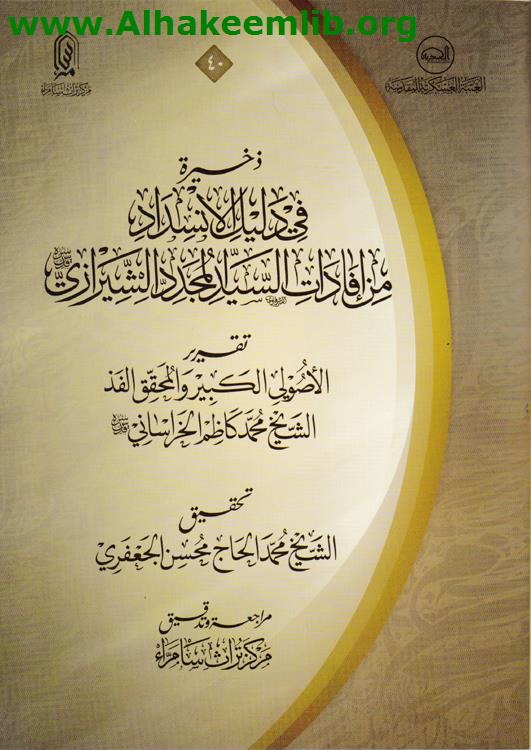 www.Alhakeemlib.org
٤٠
العتبة العسكرية المقدسة
مركز تراث سامراء
ذخيرة
في دليل الانسداد
من إفادات السيد المجدد الشيرازي
تقرير
الأصولي الكبير والمحقق الفذ
الشيخ محمد كاظم الخراساني
تحقيق
الشيخ محمد الحاج محسن الجعفري
مراجعة وتدقيق
مركز تراث سامراء